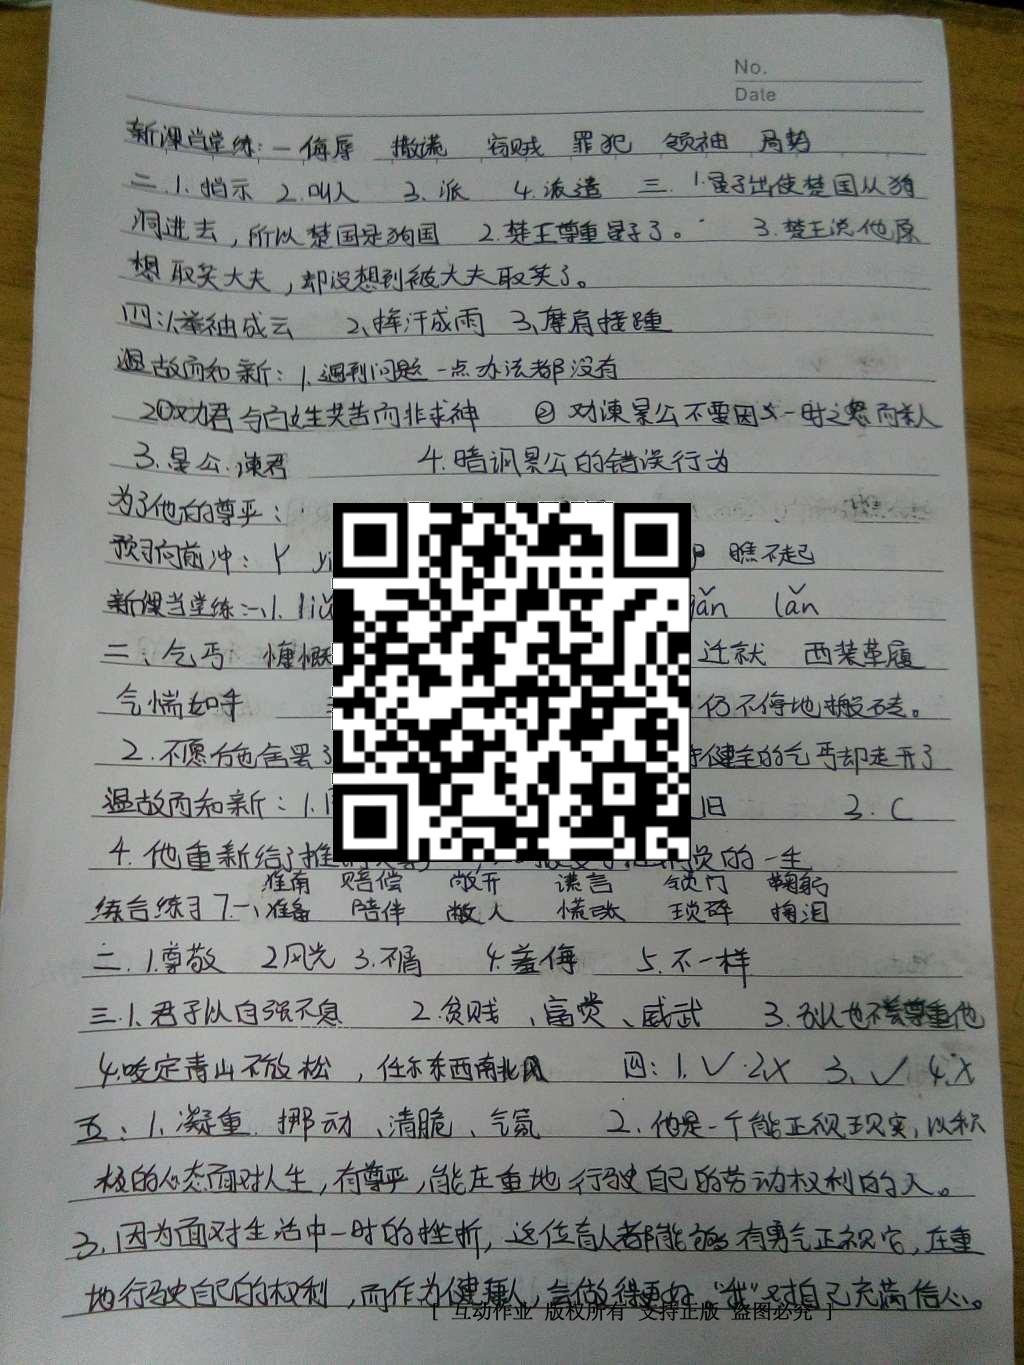 No.
Date
新课当堂练：一 侮辱 撒谎 窃贼 罪犯 领袖 局势
二.1.指示 2.叫人 3.派 4.派遣 三.1.晏子出使楚国从狗
洞进去，所以楚国是狗国 2.楚王尊重晏子了。 3.楚王说他原
想取笑大夫，却没想到被大夫取笑了。
四：1.举袖成云 2、挥汗成雨 3、摩肩接踵
温故而知新：1.遇到问题一点办法都没有
2①劝君与百姓共苦而非求神 ② 劝谏景公不要因 一时之怒而杀人
3.景公.谏君 4.暗讽景公的错误行为
为了他人的尊严：
预习向前冲：丫 瞧不起
新课当堂练：一、1. lǎn
二、乞丐 慷慨 迁就 西装革履
气喘如牛 仍不停地搬砖。
2.不愿 健全的乞丐却走开了
温故而知新：1. 旧 3.C
4.他重新给了 的一生
淮南 赔偿 敞开 谎言 锁门 鞠躬
综合练习7.一、准备 陪伴 敝人 慌张 琐碎 掬泪
二.1.尊敬 2风光 3.不屑 4.羞侮 5.不一样
三.1.君子以自强不息 2.贫贱、富贵、威武 3.
4.咬定青山不放松，任尔东西南北风 四：1.✓ 2.X 3.✓ 4.X
五：1.凝重.挪动、清脆、气氛 2.他是一个能正视现实，以积
极的心态面对人生，有尊严，能庄重地行驶自己的劳动权利的人。
3.因为面对生活中一时的挫折，这位盲人都能够有勇气正视它，庄重
地行驶自己的权利，而作为健康人，会做得更好，“我”对自己充满信心。
[ 互动作业 版权所有 支持正版 盗图必究 ]